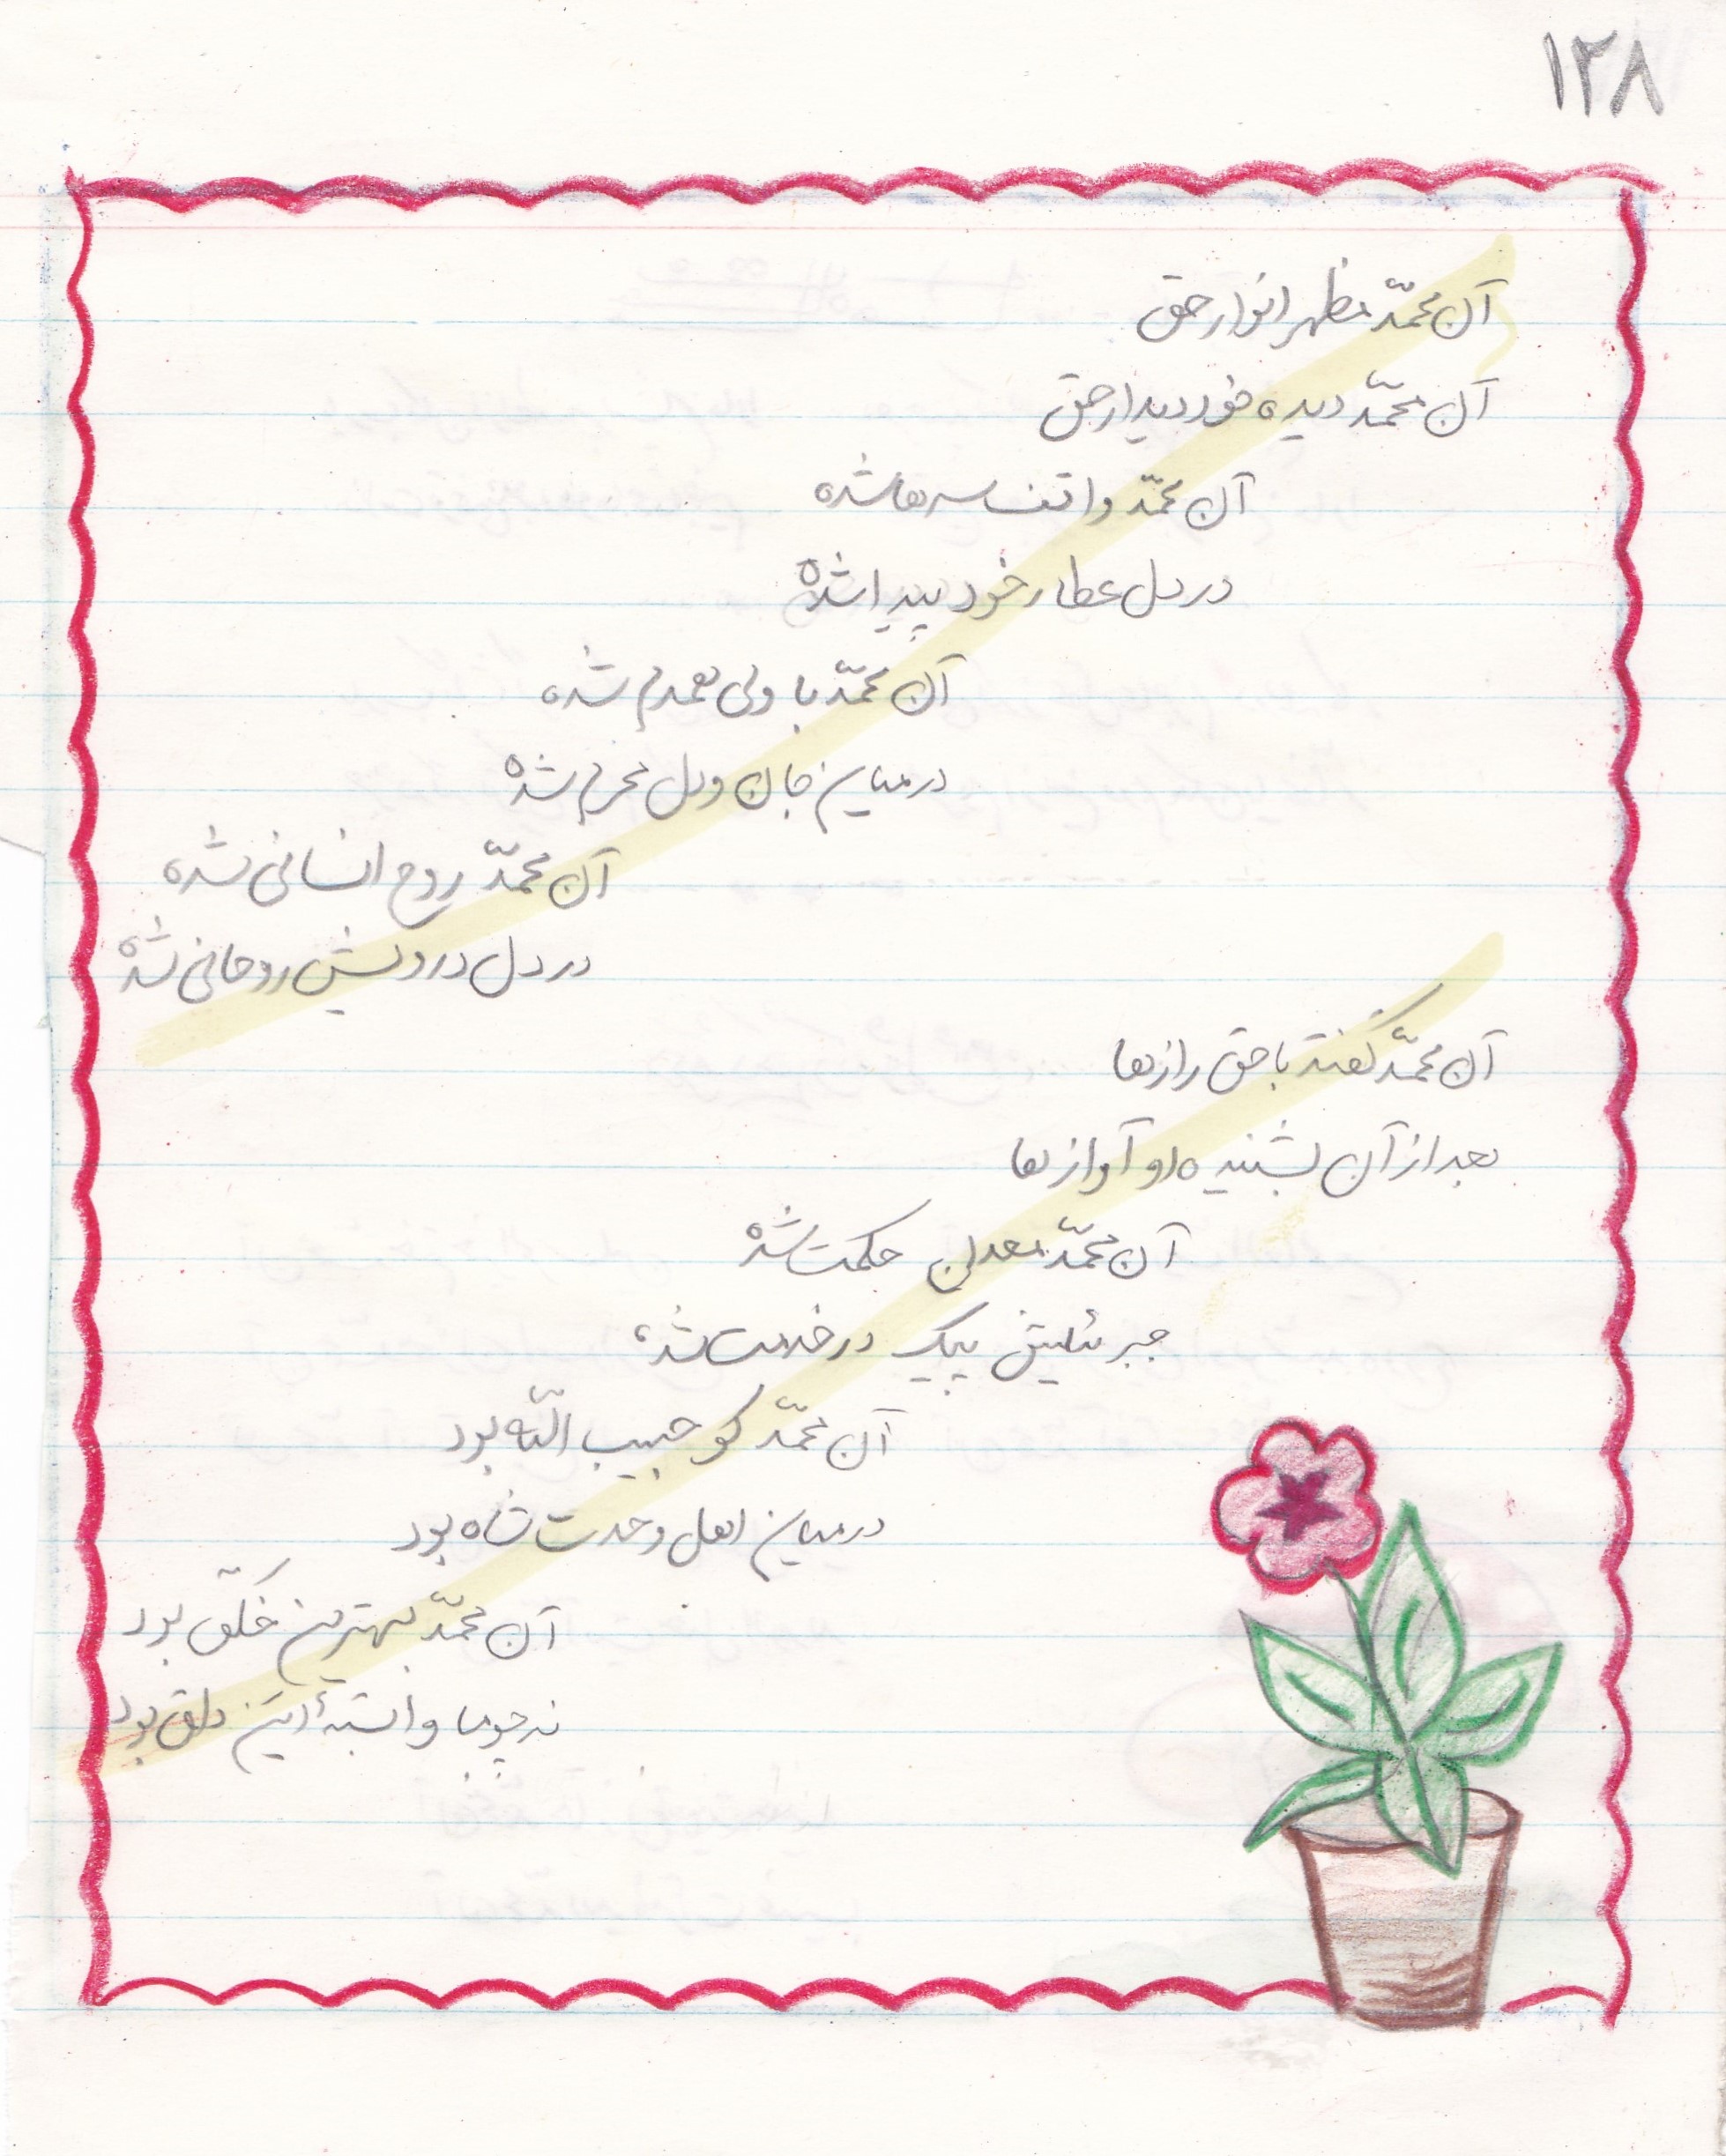 ۱۲۸
آن محمّد مظهر انوار حق
آن محمّد دیده خود دیدار حق
آن محمّد واقف سرها شده
در دل عطار خود پیدا شده
آن محمّد با ولی همدم شده
در میان جان و دل محرم شده
آن محمّد روح انسانی شده
در دل درویش روحانی شده
آن محمّد گفته با حق رازها
بعد از آن بشنیده او آوازها
آن محمّد معدن حکمت شده
جبرئیلش پیک در خدمت شده
آن محمّد کو حبیب اللّه بود
در میان اهل وحدت شاه بود
آن محمّد بهترین خلق بود
نه چو ما وابستهٔ این دلق بود